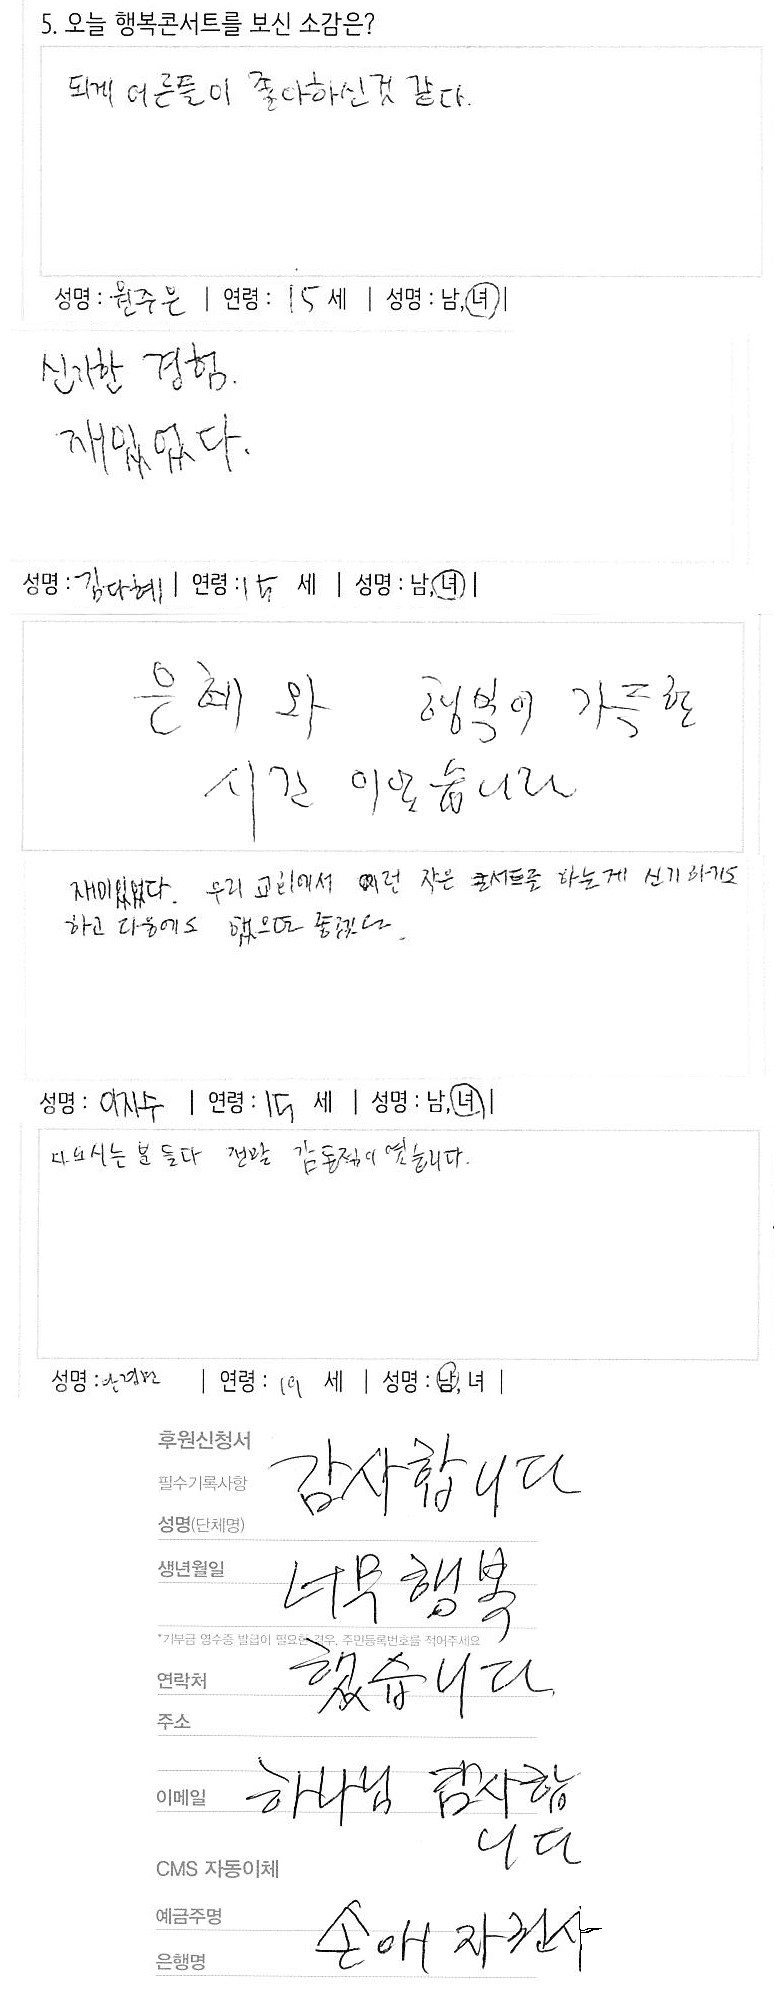 5. 오늘 행복콘서트를 보신 소감은?
되게 어른들이 좋아하신것 같다.
성명 : 원주은 | 연령 : 15 세 | 성명 : 남, 녀 |
신기한 경험.
재밌었다.
성명 : 김다혜 | 연령 : 15 세 | 성명 : 남, 녀 |
은혜와 행복이 가득한
시간 이었습니다
재미있었다. 우리 교회에서 이런 작은 콘서트를 하는게 신기하기도
하고 다음에도 했으면 좋겠다.
성명 : 이지수 | 연령 : 15 세 | 성명 : 남, 녀 |
나오시는 분 들다 정말 감동적이였습니다.
성명 : | 연령 : 19 세 | 성명 : 남, 녀 |
후원신청서
감사합니다
필수기록사항
성명(단체명)
생년월일
너무 행복
*기부금 영수증 발급이 필요한 경우, 주민등록번호를 적어주세요
했습니다
연락처
주소
이메일
하나님 감사합
니다
CMS 자동이체
예금주명
손애자권사
은행명